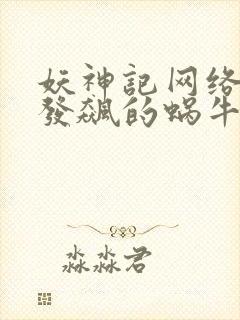 妖神記网络
發飆的蜗牛
淼淼君